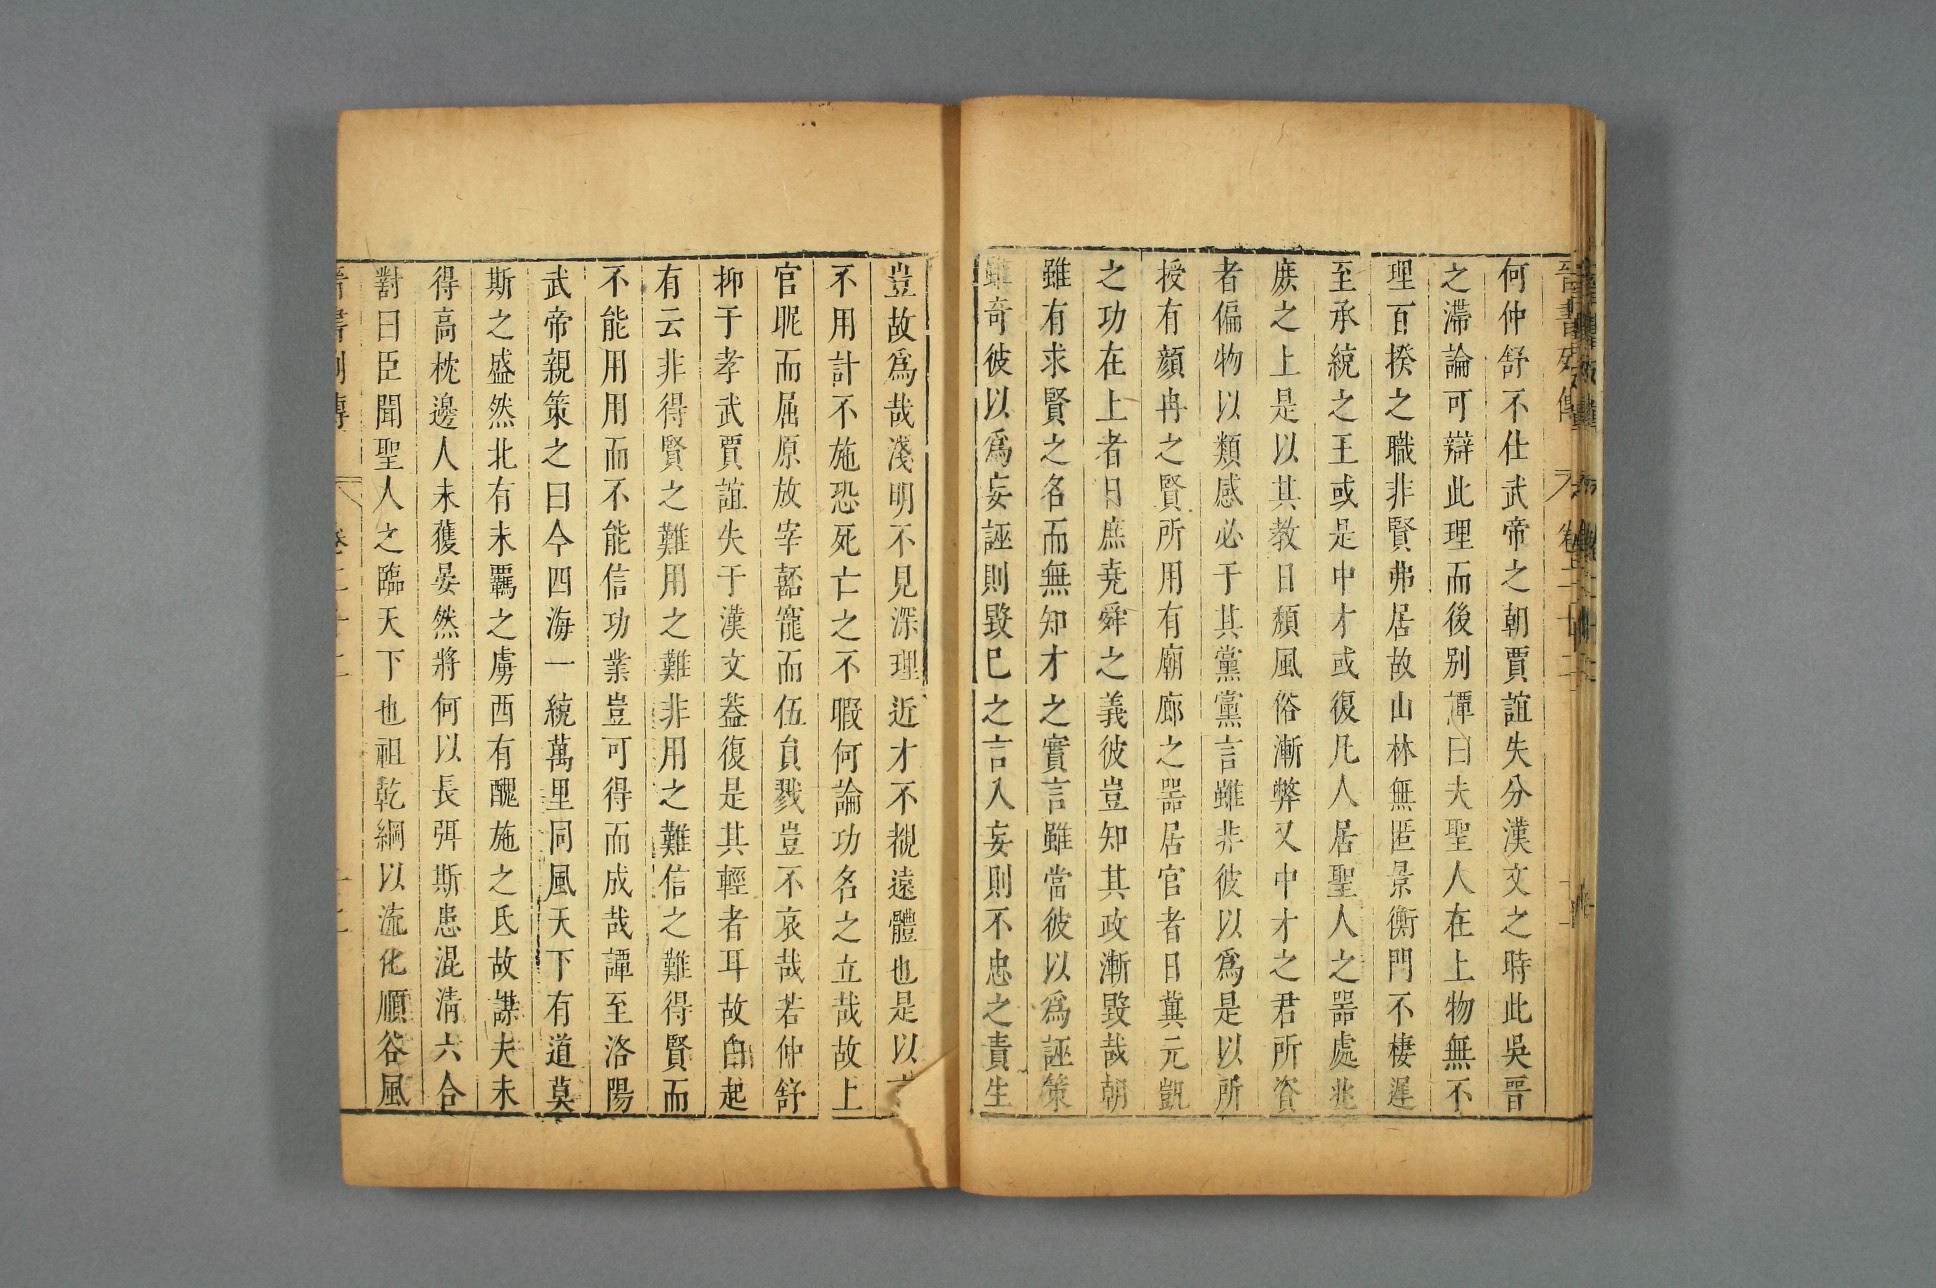 何仲舒不仕武帝之朝賈誼失分漢文之時此吳晉
之滯論可辯此理而後别譚曰夫聖人在上物無不
理百揆之職非賢弗居故山林無匿景衡門不棲遲
至承統之王或是中才或復凡人居聖人之器處兆
庶之上是以其教日頹風俗漸弊又中才之君所資
者偏物以類感必于其黨黨言雖非彼以爲是以所
授有顔冉之賢所用有廟廊之器居官者日冀元凱
之功在上者日庶堯舜之義彼豈知其政漸毀哉朝
雖有求賢之名而無知才之實言雖當彼以爲誣策
雖奇彼以爲妄誣則毀已之言入妄則不忠之責生
豈故爲哉淺明不見深理近才不覩遠體也是以
不用計不施恐死亡之不暇何論功名之立哉故上
官昵而屈原放宰嚭寵而伍負戮豈不哀哉若仲舒
抑于孝武賈誼失于漢文葢復是其輕者耳故白起
有云非得賢之難用之難非用之難信之難得賢而
不能用用而不能信功業豈可得而成哉譚至洛陽
武帝親策之曰今四海一統萬里同風天下有道莫
斯之盛然北有未羈之虜西有醜施之氏故謀夫未
得高枕邊人未獲晏然將何以長弭斯患混清六合
對曰臣聞聖人之臨天下也祖乾綱以流化順谷風
晉書列傳 卷二十二